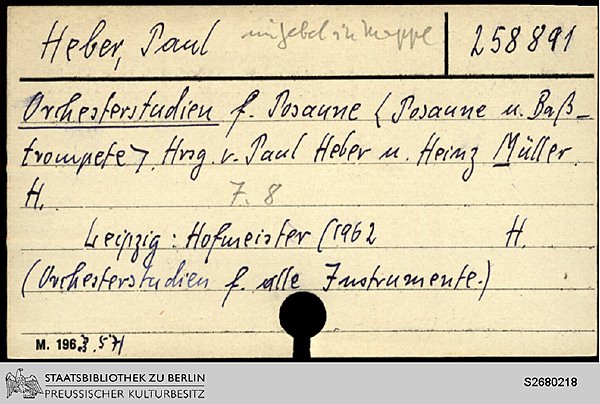 Heber, Paul 258891
Orchesterstudien f. Posaune <Posaune u. Baß-
trompete>. Hrsg. v. Paul Heber u. Heinz Müller.
H. 7. 8
Leipzig: Hofmeister (1962 H.
(Orchesterstudien f. alle Instrumente.)
M. 196
STAATSBIBLIOTHEK ZU BERLIN
PREUSSISCHER KULTURBESITZ
S2680218